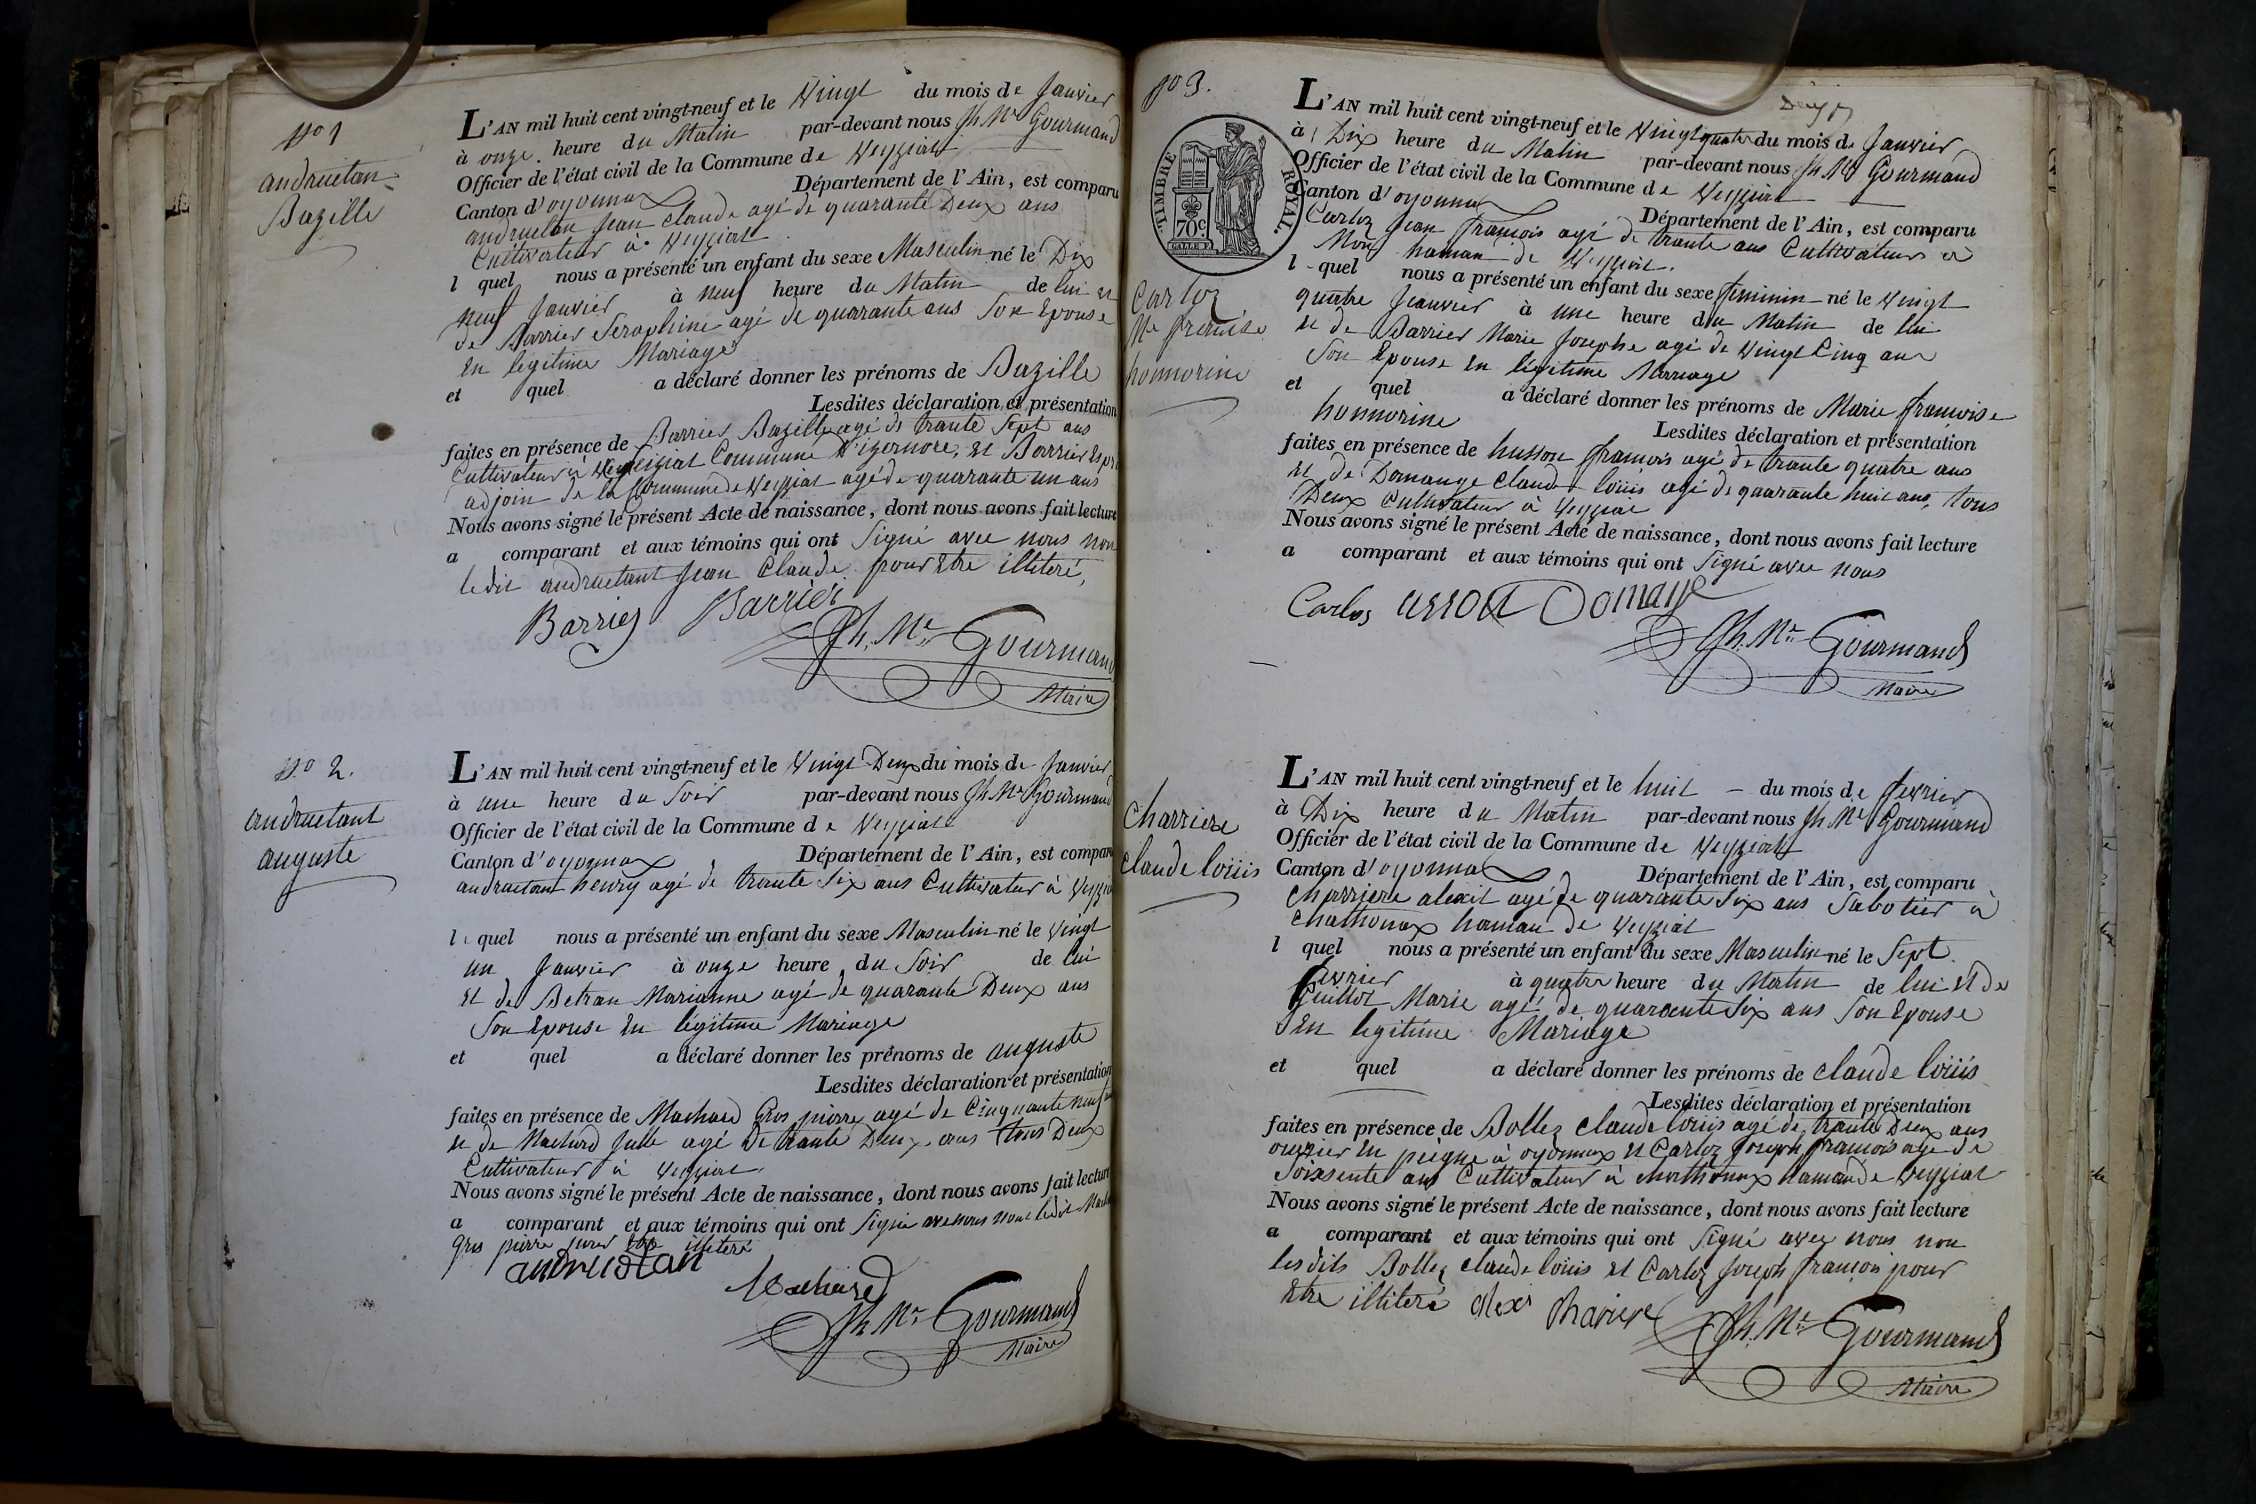 No 1
andruetan
Bazille
L'AN mil huit cent vingt-neuf et le Vingt du mois de Janvier
à onze heure du Matin par-devant nous Jh Mie Gourmand
Officier de l'état civil de la Commune de Veyziat
Canton d'oyonnax Département de l'Ain, est comparu
andruetan Jean Claude agé de quarante Deux ans
Cultivateur à Veyziat
l quel nous a présenté un enfant du sexe Masculin né le Dix
neuf Janvier à neuf heure du Matin de lui et
de Barrier Seraphine agé de quarante ans Son Epouse
en legitime Mariage
et quel a déclaré donner les prénoms de Bazille
Lesdites déclaration et présentation
faites en présence de Barrier Bazille agé de trante Sept ans
Cultivateur à Commune d'izernore, et Barrier
adjoin de la Commune de Veyziat agé de quarante un ans
Nous avons signé le présent Acte de naissance, dont nous avons fait lecture
a comparant et aux témoins qui ont Signé avec nous non
le dit andruetant Jean Claude pour Etre illiteré,
Barrier Barrier
Jh. Mie Gourmand
Maire
No 2.
andruetant
auguste
L'AN mil huit cent vingt-neuf et le Vingt Deux du mois de Janvier
à une heure du Soir par-devant nous Jh Mie Gourmand
Officier de l'état civil de la Commune de Veyziat
Canton d'oyonnax Département de l'Ain, est comparu
andruetant henry agé de trante Six ans Cultivateur à Veyziat
le quel nous a présenté un enfant du sexe Masculin né le Vingt
un Janvier à onze heure du Soir de lui
et de Betran Marianne agé de quarante Deux ans
Son Epouse en legitime Mariage
et quel a déclaré donner les prénoms de auguste
Lesdites déclaration et présentation
faites en présence de Machard Gros pierre agé de Cinquante neuf ans
et de Machard Julle agé De trante Deux ans tous Deux
Cultivateur à Veyziat
Nous avons signé le présent Acte de naissance, dont nous avons fait lecture
a comparant et aux témoins qui ont Signé avec nous non ledit
gros pierre pour Etre illiteré
andruétan
Machard
Jh. Mie Gourmand
Maire
no 3.
Deux
TIMBRE ROYAL.
70c
Carloz
Mie francoise
honnorine
L'AN mil huit cent vingt-neuf et le Vingt quatre du mois de Janvier
à Dix heure du Matin par-devant nous Jh Mie Gourmand
Officier de l'état civil de la Commune de Veyziat
Canton d'oyonnax Département de l'Ain, est comparu
Carloz Jean francois agé de trante ans Cultivateur à
Mons hamau de Veyziat.
l quel nous a présenté un enfant du sexe feminin né le Vingt
quatre Jeanvier à une heure du Matin de lui
et de Barrier Marie Josephe agé de Vingt Cinq ans
Son Epouse en légitime Mariage
et quel a déclaré donner les prénoms de Marie francoise
honnorine
Lesdites déclaration et présentation
faites en présence de husson francois agé de trante quatre ans
et de Domange Claude louis agé de quarante huit ans, tous
Deux Cultivateur à Veyziat
Nous avons signé le présent Acte de naissance, dont nous avons fait lecture
a comparant et aux témoins qui ont Signé avec nous
Carlos usson Domange
Jh. Mie Gourmand
Maire
Charriere
claude louis
L'AN mil huit cent vingt-neuf et le huit du mois de fevrier
à Dix heure du Matin par-devant nous Jh Mie Gourmand
Officier de l'état civil de la Commune de Veyziat
Canton d'oyonnax Département de l'Ain, est comparu
Charriere alexit agé de quarante Six ans Sabotier à
Chathonax hamau de Veyziat
l quel nous a présenté un enfant du sexe Masculin né le Sept
fevrier à quatre heure du Matin de lui et de
Guillot Marie agé de quarente Six ans Son Epouse
En legitime Mariage
et quel a déclaré donner les prénoms de claude louis
Lesdites déclaration et présentation
faites en présence de Bollez Claude louis agé de trante Deux ans
ouvrier en peigne à oyonnax et Carloz Joseph francois agé de
Soixsente ans Cultivateur à Chathonax hamau de Veyziat
Nous avons signé le présent Acte de naissance, dont nous avons fait lecture
a comparant et aux témoins qui ont Signé avec nous non
lesdits Bollez claude louis et Carloz Joseph francois pour
Etre illiteré alexi Chariere
Jh. Mie Gourmand
Maire